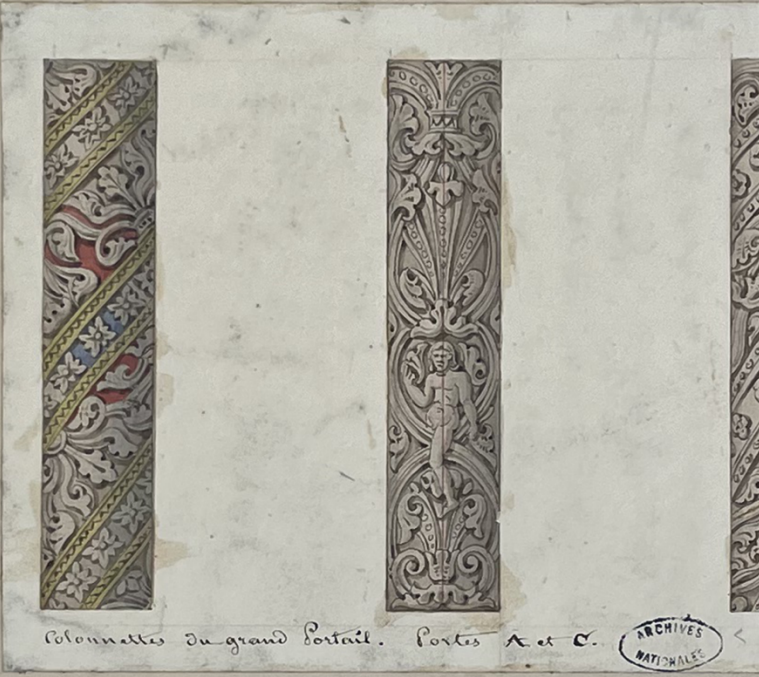 Colonnettes du grand Portail. Portes A et C.
ARCHIVES
NATIONALES